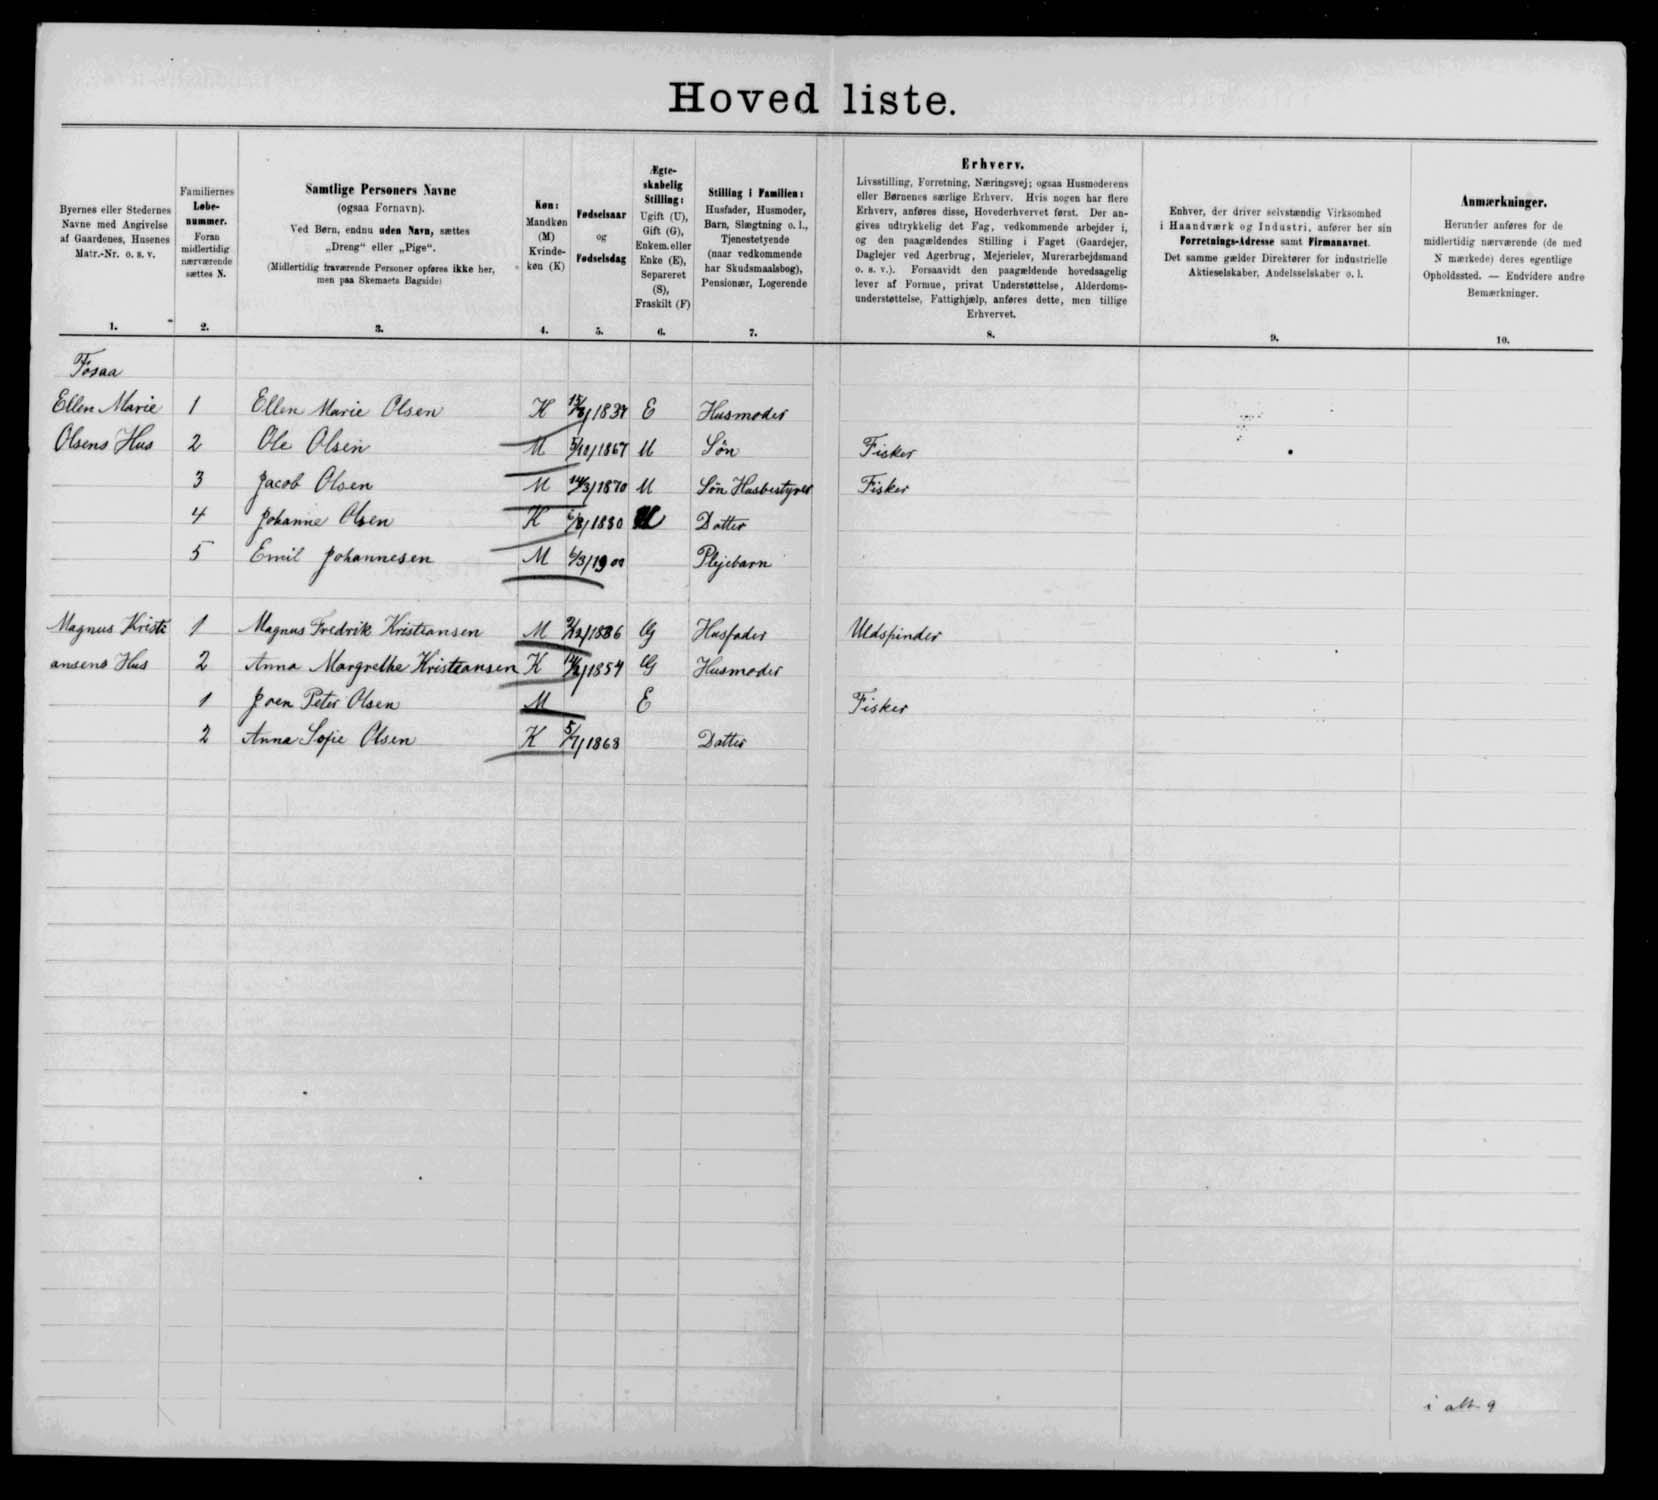 Hovedliste.
Byernes eller Stedernes
Navne med Angivelse
af Gaardenes, Husenes
Matr.-Nr. o. s. v.
1.
Familiernes
Løbe-
nummer.
Foran
midlertidig
nærværende
sættes N.
2.
Samtlige Personers Navne
(ogsaa Fornavn).
Ved Børn, endnu uden Navn, sættes
„Dreng“ eller „Pige“.
(Midlertidig fraværende Personer opføres ikke her,
men paa Skemaets Bagside)
3.
Køn:
Mandkøn
(M)
Kvinde-
køn (K)
4.
Fødselsaar
og
Fødselsdag
5.
Ægte-
skabelig
Stilling:
Ugift (U),
Gift (G),
Enkem. eller
Enke (E),
Separeret
(S),
Fraskilt (F)
6.
Stilling i Familien:
Husfader, Husmoder,
Barn, Slægtning o. l.,
Tjenestetyende
(naar vedkommende
har Skudsmaalsbog),
Pensionær, Logerende
7.
Erhverv.
Livsstilling, Forretning, Næringsvej; ogsaa Husmoderens
eller Børnenes særlige Erhverv. Hvis nogen har flere
Erhverv, anføres disse, Hovederhvervet først. Der an-
gives udtrykkelig det Fag, vedkommende arbejder i,
og den paagældendes Stilling i Faget (Gaardejer,
Daglejer ved Agerbrug, Mejerielev, Murerarbejdsmand
o. s. v.). Forsaavidt den paagældende hovedsagelig
lever af Formue, privat Understøttelse, Alderdoms-
understøttelse, Fattighjælp, anføres dette, men tillige
Erhvervet.
8.
Enhver, der driver selvstændig Virksomhed
i Haandværk og Industri, anfører her sin
Forretnings-Adresse samt Firmanavnet.
Det samme gælder Direktører for industrielle
Aktieselskaber, Andelsselskaber o. l.
9.
Anmærkninger.
Herunder anføres for de
midlertidig nærværende (de med
N mærkede) deres egentlige
Opholdssted. — Endvidere andre
Bemærkninger.
10.
Fosaa
Ellen Marie 1 Ellen Marie Olsen K 1837 E Husmoder
Olsens Hus 2 Ole Olsen M 5/10/1867 U Søn Fisker
3 Jacob Olsen M 14/3/1870 U Søn Husbestyrer Fisker
4 Johanne Olsen K 6/8/1880 U Datter
5 Emil Johannesen M 6/3/1900 Plejebarn
Magnus Kristi 1 Magnus Fredrik Kristiansen M G Husfader Uldspinder
ansens Hus 2 Anna Margrethe Kristiansen K 1854 G Husmoder
1 Joen Peter Olsen M E Fisker
2 Anna Sofie Olsen K 5/7/1868 Datter
i alt 9